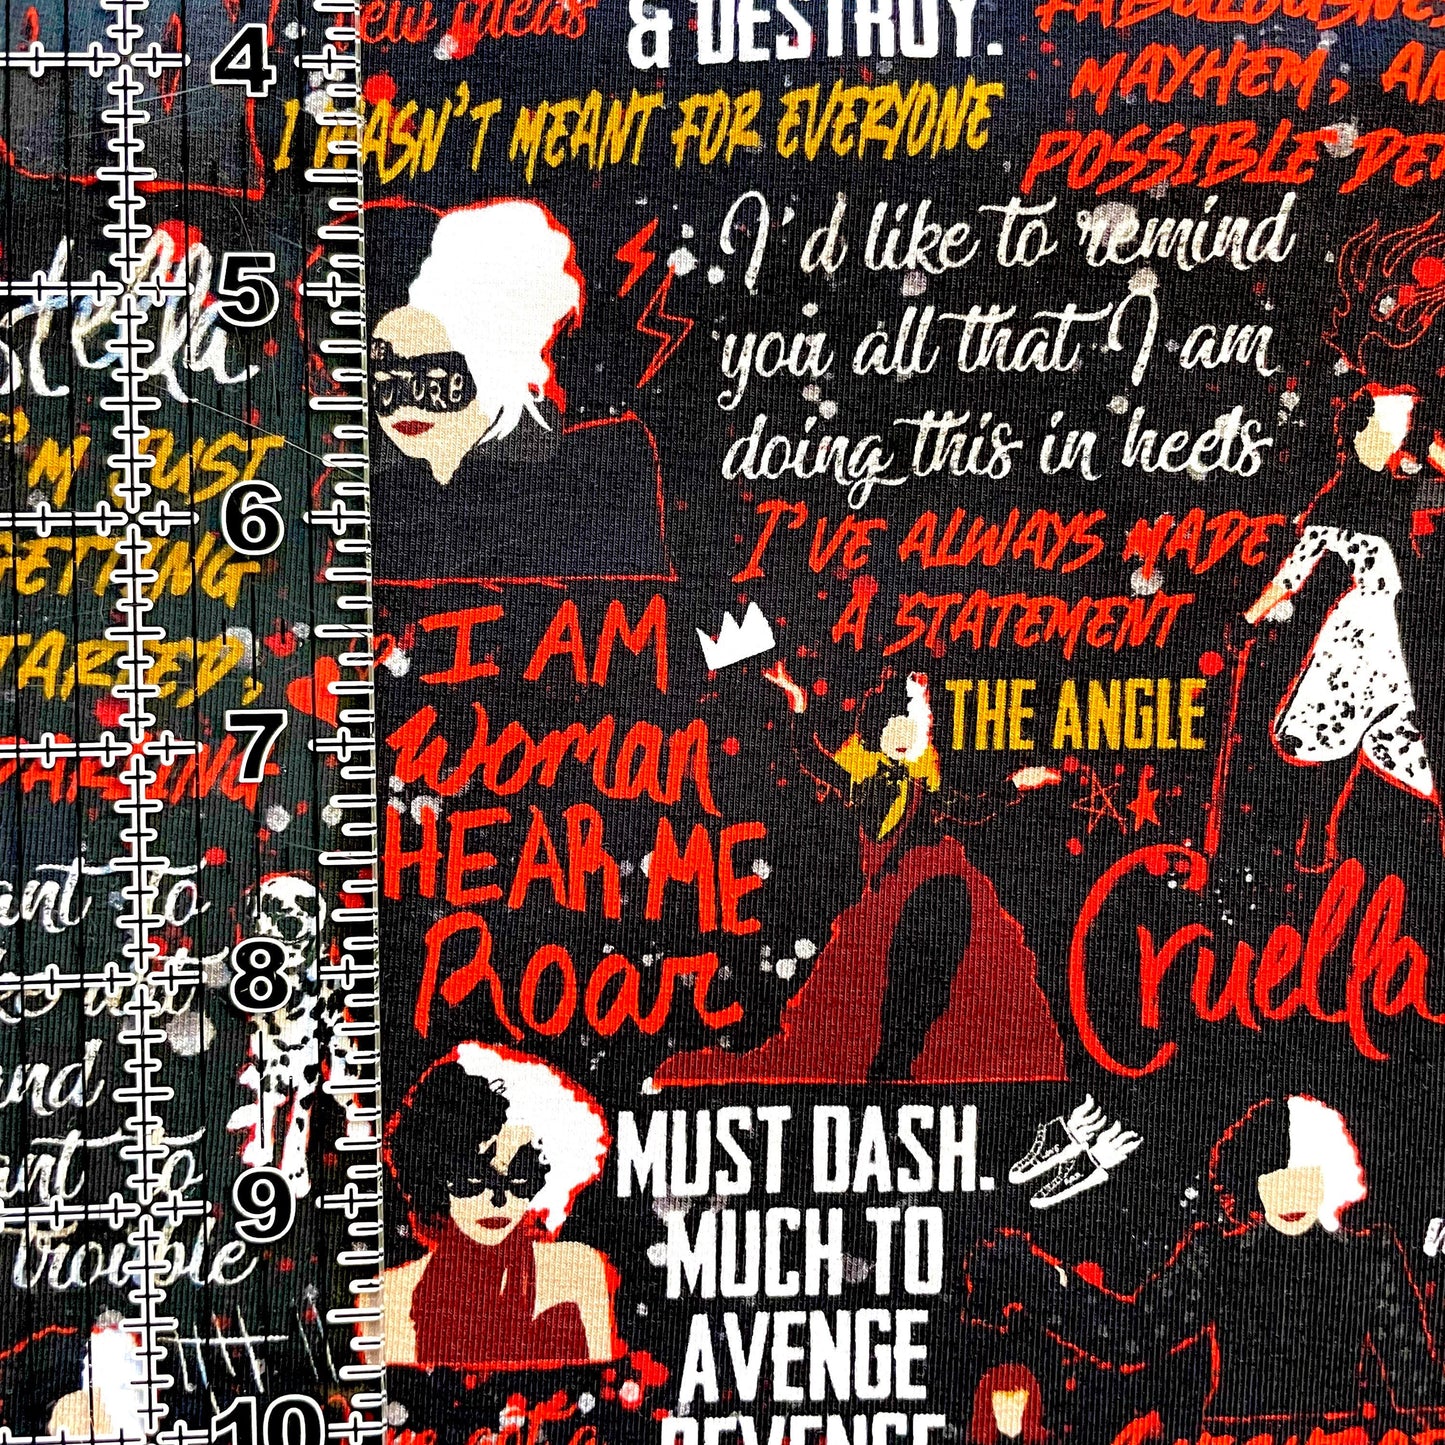 new ideas
& DESTROY.
FABULOUSNESS
MAYHEM, AN
POSSIBLE DE
I WASN'T MEANT FOR EVERYONE
I'd like to remind
you all that I am
doing this in heels
stella
I'M JUST
GETTING
STARTED,
DARLING
I'VE ALWAYS MADE
A STATEMENT
THE ANGLE
I AM
Woman
HEAR ME
Roar
Cruella
want to
make art
and
want to
trouble
MUST DASH.
MUCH TO
AVENGE
REVENGE
4
5
6
7
8
9
10